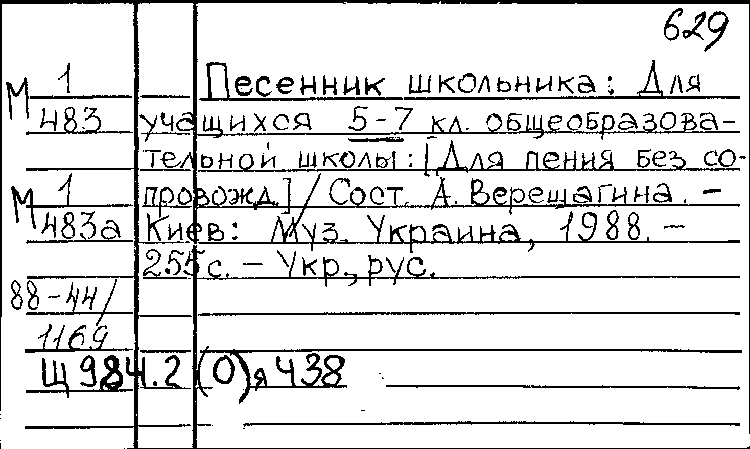 629
М 1 Песенник школьника: Для
483 учащихся 5-7 кл. общеобразова-
тельной школы: [Для пения без со-
М 1 провожд.] / Сост. А. Верещагина. –
483а Киев: Муз. Украина, 1988. –
255 с. – Укр., рус.
88-44/
1169
Щ 984.2 (0)я 438